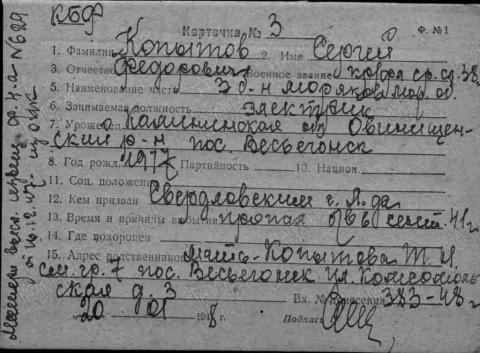 КБФ
Карточка № 3 Ф. №1
1. Фамилия Копытов 2. Имя Сергей
3. Отчество Федорович 4. Военное звание кр-фл ср. сл. 38
5. Наименование части 3 б-н моряков
6. Занимаемая должность электрик
7. Уроженец Калининской об Овинищен-
ский р-н пос. Весьегонск
8. Год рожд. 1917 9. Партийность 10. Национ.
11. Соц. положение
12. Кем призван Свердловский г. Л-да
13. Время и причины выбытия пропал б/в в сент. 41 г
14. Где похоронен
15. Адрес родственников мать-Копытова Т. И.
см. гр. 7 пос. Весьегонск ул. Комсомоль
ская д. 3
Вх. № донесения 383-48 г
"20" 01 1948 г. Подпись